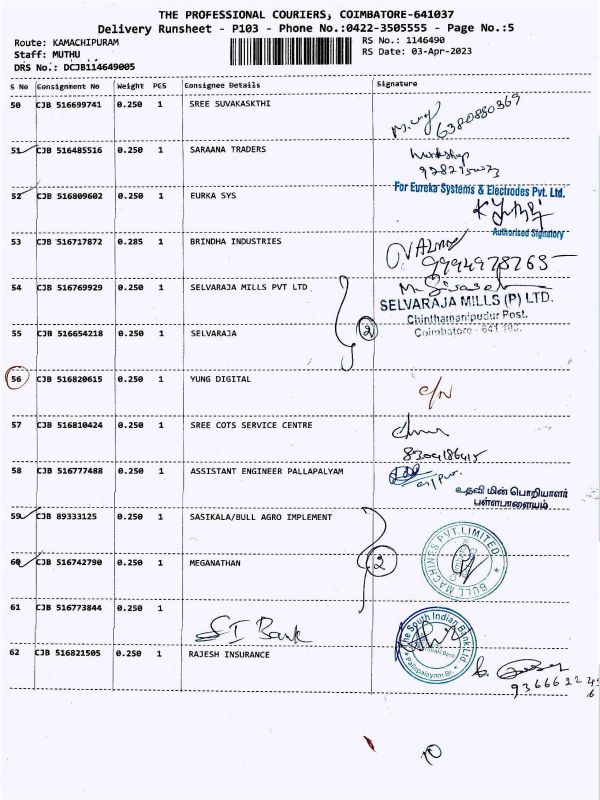 THE PROFESSIONAL COURIERS, COIMBATORE-641037
Delivery Runsheet - P103 - Phone No.:0422-3505555 - Page No.:5
Route: KAMACHIPURAM
RS No.: 1146490
Staff: MUTHU
RS Date: 03-Apr-2023
DRS No.: DCJB114649005
S No Consignment No Weight PCS Consignee Details Signature
50 CJB 516699741 0.250 1 SREE SUVAKASKTHI
6380880369
51 CJB 516485516 0.250 1 SARAANA TRADERS
52 CJB 516809602 0.250 1 EURKA SYS
For Eureka Systems & Electrodes Pvt. Ltd.
Authorised Signatory
53 CJB 516717872 0.285 1 BRINDHA INDUSTRIES
9994978765
54 CJB 516769929 0.250 1 SELVARAJA MILLS PVT LTD
SELVARAJA MILLS (P) LTD.
Chinthamanipudur Post.
Coimbatore - 641 103.
2
55 CJB 516654218 0.250 1 SELVARAJA
56 CJB 516820615 0.250 1 YUNG DIGITAL
C/N
57 CJB 516810424 0.250 1 SREE COTS SERVICE CENTRE
8304186415
58 CJB 516777488 0.250 1 ASSISTANT ENGINEER PALLAPALYAM
உதவி மின் பொறியாளர்
பள்ளபாளையம்
59 CJB 89333125 0.250 1 SASIKALA/BULL AGRO IMPLEMENT
BULL MACHINES PVT.LIMITED
60 CJB 516742790 0.250 1 MEGANATHAN
2
61 CJB 516773844 0.250 1
SI Bank
The South Indian Bank Ltd
Pallapalayam Br.
62 CJB 516821505 0.250 1 RAJESH INSURANCE
10